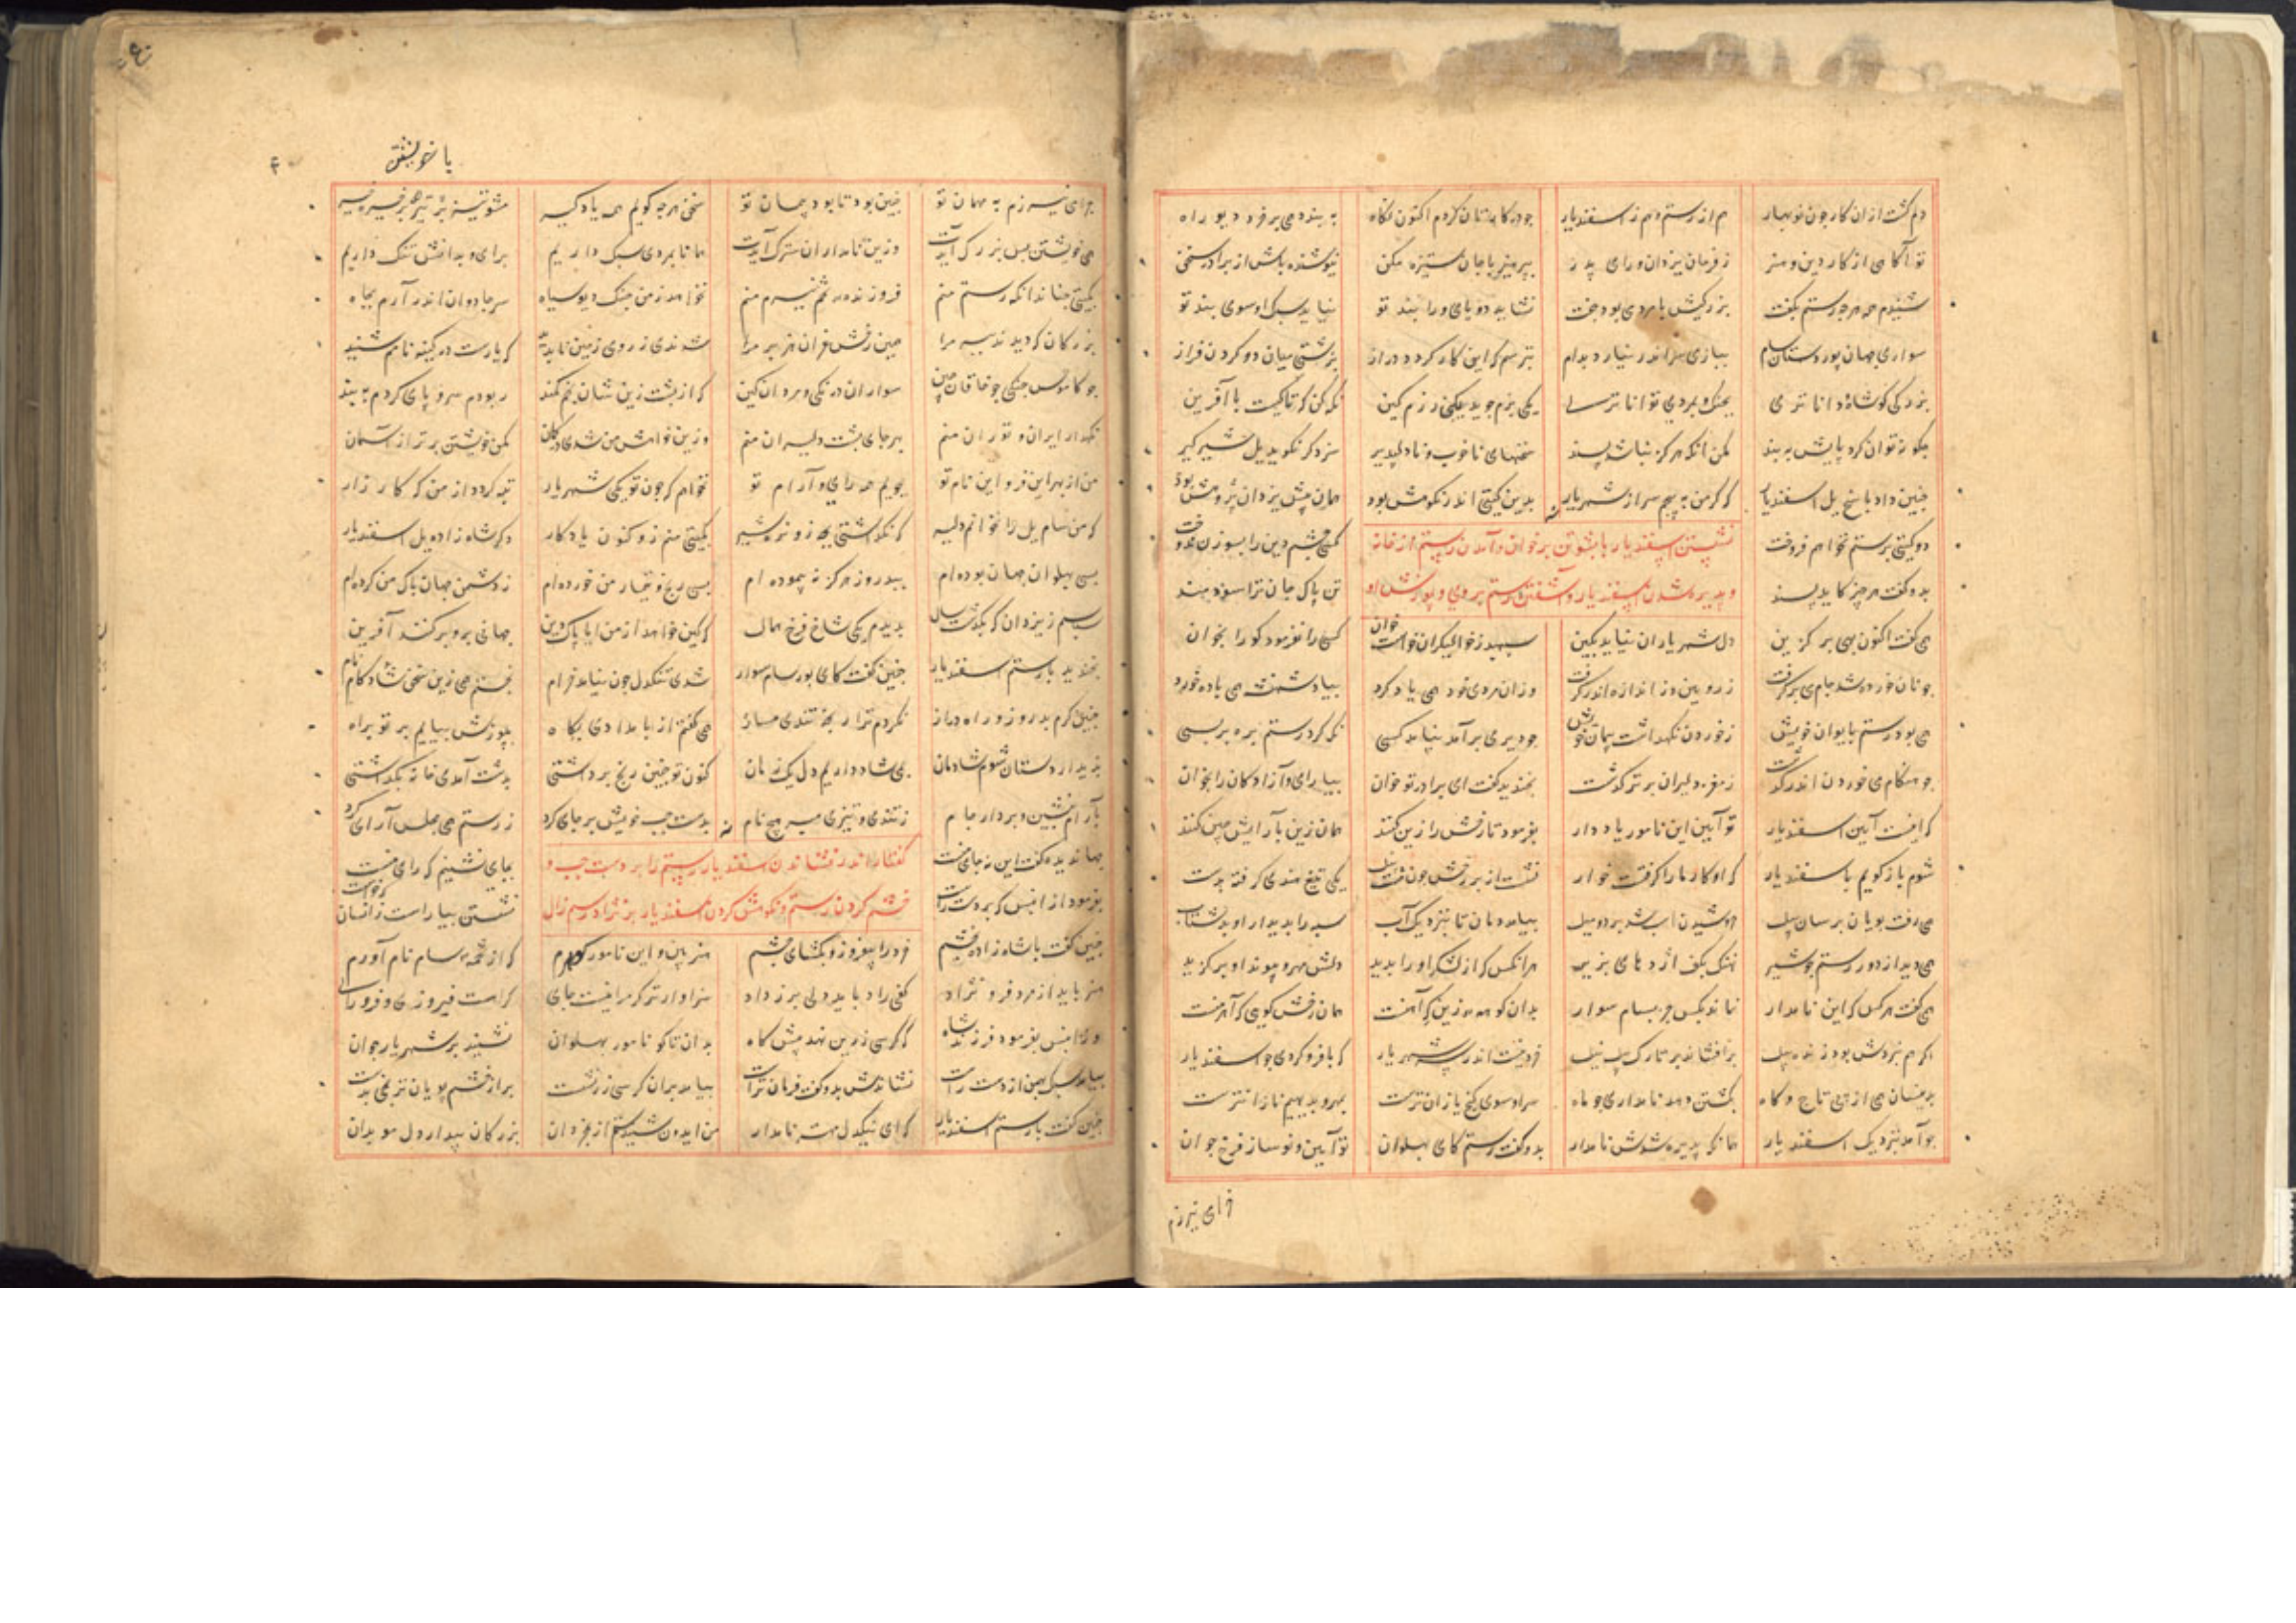 دلم گشت از ان کار چون نوبهار هم از رستم و هم ز اسفندیار چو در کارتان کردم اکنون نگاه به بندد همی بر خرد دیو راه
تو آگاهی از کار دین و هنر ز فرمان یزدان و رای پدر بپرهیز با جان ستیزه مکن نیوشنده باش از برادر سخن
شنیدم همه هرچه رستم بگفت بزرگیش با مردمی بود جفت نشاید دو پای ورا بند تو نیاید سبک او سوی بند تو
سوار جهان پور دستان سام ببازی سر اندر نیارد بدام بترسم که این کار گردد دراز بزشتی میان دو گردن فراز
بزرگی و از شاه داناتری بجنگ و بمردی تواناتری یکی بزم جوید یکی رزم و کین نگه کن که تا کیست با آفرین
چگونه توان کرد پایش به بند مکن آنکه هرگز نباشد پسند سخنهای ناخوب و نادلپذیر سزد گر نگوید یل شیر گیر
چنین داد پاسخ یل اسفندیار که گر من به پیچم سر از شهریار بدین گیتی اندر نکوهش بود همان پیش یزدان پژوهش بود
دو گیتی برستم نخواهم فروخت کسی چشم دین را بسوزن ندوخت
نشستن اسفندیار با بشوتن بر خوان و آمدن رستم از خانه
بدو گفت هر چیز کاید پسند تن پاک و جان ترا سودمند
و پذیره شدن اسفندیار و آشفتن رستم بر وی و پوزش او
همی گفت اکنون بهی بر گزین دل شهریاران نیاید بکین سپهبد ز خوالیگران خواست خوان کسی را نفرمود کو را بخوان
چو نان خورده شد جام می بر گرفت ز رویین دز اندازه اندر گرفت وزان مردی خود همی یاد کرد بیاد شهنشه می باده خورد
همی بود رستم بایوان خویش ز خوردن نگهداشت پیمان خویش چو دیری بر آمد نیامد کسی نگه کرد رستم بره بر بسی
چو هنگام می خوردن اندر گذشت ز مغز دلیران برتر گذشت بخندید گفت ای برادر تو خوان بیارای و آزادگان را بخوان
که اینست آیین اسفندیار تو آیین این نامور یاد دار بفرمود تا رخش را زین کنند همان زین بآرایش چین کنند
شوم باز گویم باسفندیار که او کار ما را گرفتست خوار نشست از بر رخش چون یکی تیغ هندی گرفته بدست
همی رفت پویان برسان پیل خروشیدن اسب شد بر دو میل بیامد دمان تا بنزدیک آب سپه را بدیدار او بد شتاب
همی دید از دور رستم چو شیر نهنگ بکف اژدهای بزیر هر آنکس که از لشکر او را بدید دلش مهر و پیوند او برگزید
همی گفت هرکس که این نامدار نماند بکس جز بسام سوار بدان کوهه زین که آهنست همان رخش گویی که آهرمنست
اگر هم نبردش بود زنده پیل برافشاند بر تارک پیل نیل خرد نیست اندر سر شهریار که با فر و گردی چو اسفندیار
بدینسان همی از پی تاج و گاه بکشتن دهد نامداری چو ماه سراسوی گنج یازان ترست بمهر و بدیهیم نازانترست
چو آمد بنزدیک اسفندیار همانگه پذیره شدش نامدار بدو گفت رستم کای پهلوان نوآیین و نوساز فرخ جوان
خرامی نیرزم
یا خویشتن
خرامی نیرزم به مهمان تو چنین بود تا بود پیمان تو سخن هرچه گویم همه یاد گیر مشو تیز با پیر بر خیره خیر
همی خویشتن بس بزرگ آیدت وزین نامداران سترگ آیدت همانا بمردی سبک داریم برای و بدانش تنک داریم
بگیتی چنان دان که رستم منم فروزنده تخم نیرم منم نخواهد ز من جنگ دیو سیاه سر جادوان اندر آرم بچاه
بزرگان که دیدند ببر مرا همین رخش غران هزبر مرا شدندی ز روی زمین ناپدید که یارست در کینه نامم شنید
چو کاموس جنگی چو خاقان چین سواران جنگی و مردان کین که از پشت زین شان بخم کمند ربودم سر و پای کردم به بند
نگهدار ایران و توران منم بهر جای پشت دلیران منم وزین خواهش من شدی در گمان مکن خویشتن برتر از آسمان
من از بهر این فر و این نام تو بجویم همه رای و آرام تو نخواهم که چون تو یکی شهریار تبه گردد از من گه کارزار
که من سام یل را بخوانم دلیر که نگذاشتی بیشه از نره شیر بگیتی منم زو کنون یادگار دگر شاهزاده یل اسفندیار
بسی پهلوان جهان بوده ام ببد روز هرگز نه پیموده ام بسی رنج و تیمار من خورده ام ز دشمن جهان پاک من کرده ام
سپاسم ز یزدان که بگذشت سال بدیدم یکی شاخ فرخ همال که کین خواهد از من ایا پاک دین جهانی بروبر کنند آفرین
بخندید با رستم اسفندیار چنین گفت کای پور سام سوار شدی تنگدل چون نیامد خرام بجستم همی زین سخن شاد کام
چنین گرم بد روز و راه دراز نکردم ترا رنجه تندی مساز همی گفتم از بامدادی پگاه بپوزش بیایم بر تو براه
بدیدار دستان شوم شادمان همی شاد داریم دل یک زمان کنون تو چنین رنج برداشتی بدشت آمدی خانه بگذاشتی
بآرام بنشین و بردار جام ز تندی و تیزی مبر هیچ نام بدست چپ خویش بر جای کرد ز رستم همی مجلس آرای کرد
جهاندیده گفت این نه جای منست بجای نشینم که رای منست
گفتار اندر نشاندن اسفندیار رستم را بر دست چپ و
بفرمود از آنپس که بر دست راست نشستن بیاراست زانسان که خواست
خشم کردن رستم و نکوهش کردن اسفندیار بر نژاد رستم زال
چنین گفت با شاهزاده بخشم خرد را بیفروز و بگشای چشم هنر بین و این نامور گوهرم که از تخمه سام نام آورم
هنر باید از مرد و فر و نژاد کفی راد باید دلی پر ز داد سزاوار تر گر مرا نیست جای کراست فیروزی و فر و رای
وزانپس بفرمود فرزند شاه که کرسی زرین نهد پیش گاه بدان تا گو نامور پهلوان نشیند بر شهریار جوان
بیامد سبک بهمن از دست راست نشاندش بدو گفت فرمان تراست بیامد بران کرسی زر نشست پر از خشم پویان ترنجی بدست
چنین گفت با رستم اسفندیار که ای نیکدل مهتر نامدار من ایدون شنیدستم از بخردان بزرگان بیدار دل موبدان